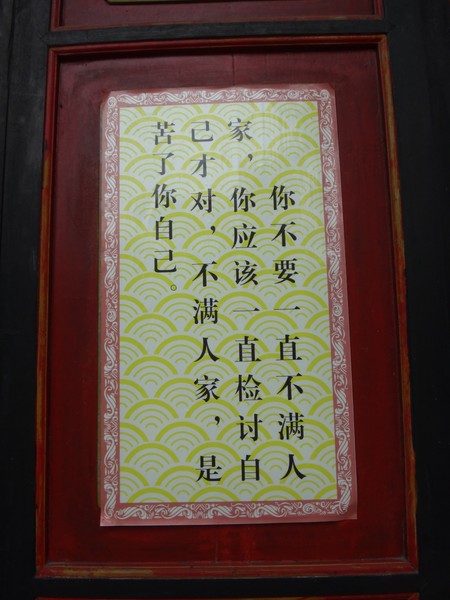 你不要一直不满人
家，你应该一直检讨自
己才对，不满人家，是
苦了你自己。